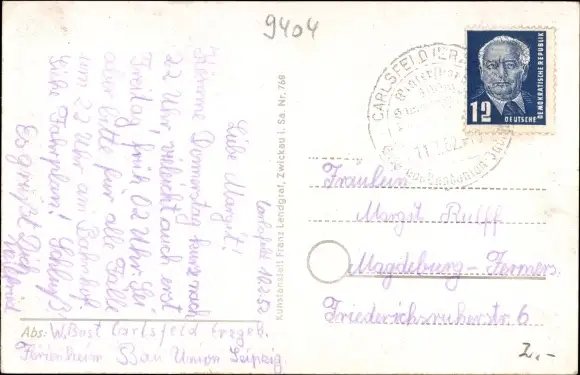 9404
Carlsfeld 10.7.52
Liebe Margit!
Komme Donnerstag kurz nach
22 Uhr, vielleicht auch erst
Freitag früh 02 Uhr. Sei
aber bitte für alle Fälle
um 22 Uhr am Bahnhof.
Sieh Fahrplan! Schluß
Es grüßt Dich
Abs: W. Bast Carlsfeld Erzgeb.
Ferienheim Bau Union Leipzig.
Kunstanstalt Franz Landgraf, Zwickau i. Sa. Nr. 768
CARLSFELD (ERZ
11.7.52
12
DEUTSCHE
DEMOKRATISCHE REPUBLIK
Fräulein
Margit Rulff
Magdeburg – Fermers.
Friederichsruherstr. 6
2,-